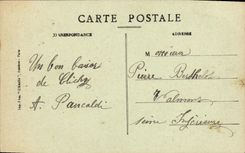 CARTE POSTALE
CORRESPONDANCE
Un bon baiser
de Clichy
A. Pancaldi
M
Pierre Berthelot
Valmont
Seine Inférieure